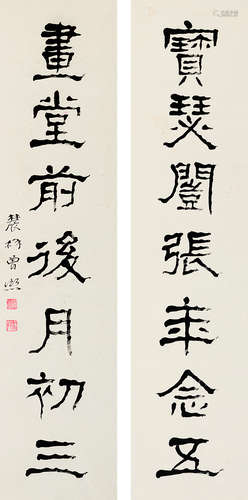 寶瑟闓張年念五
畫堂前後月初三
農髯曾熙